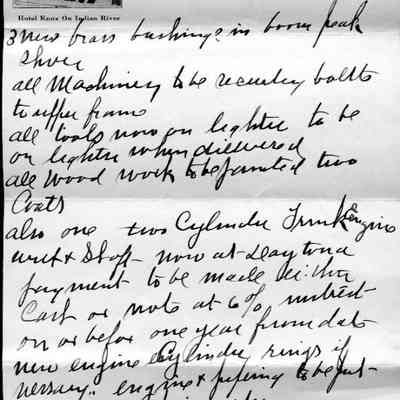 Hotel Knox On Indian River
3 new brass bushings in boom peak
Shoes
all Machinery to be recurley bolts
to upper frame
all tools now on lighter to be
on lighter when dilivered
all wood work to be painted two
Coats
also one two Cylinder Trunk Engine
now at Daytona
payment to be made either
Cash or note at 6%
on or befor one year from dat
new engine Cylinder rings if
engine & to be put